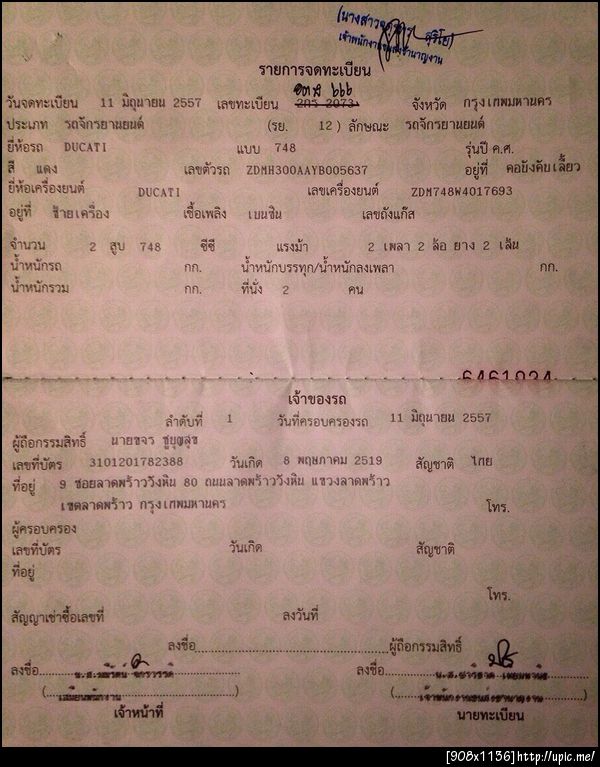 (นางสาว สุริโย)
เจ้าพนักงานขนส่งชำนาญงาน
รายการจดทะเบียน
วันจดทะเบียน 11 มิถุนายน 2557 เลขทะเบียน 2กร 2073 จังหวัด กรุงเทพมหานคร
ประเภท รถจักรยานยนต์ (รย. 12 ) ลักษณะ รถจักรยานยนต์
ยี่ห้อรถ DUCATI แบบ 748 รุ่นปี ค.ศ.
สี แดง เลขตัวรถ ZDMH300AAYB005637 อยู่ที่ คอบังคับเลี้ยว
ยี่ห้อเครื่องยนต์ DUCATI เลขเครื่องยนต์ ZDM748W4017693
อยู่ที่ ซ้ายเครื่อง เชื้อเพลิง เบนซิน เลขถังแก๊ส
จำนวน 2 สูบ 748 ซีซี แรงม้า 2 เพลา 2 ล้อ ยาง 2 เส้น
น้ำหนักรถ กก. น้ำหนักบรรทุก/น้ำหนักลงเพลา กก.
น้ำหนักรวม กก. ที่นั่ง 2 คน
6461034
เจ้าของรถ
ลำดับที่ 1 วันที่ครอบครองรถ 11 มิถุนายน 2557
ผู้ถือกรรมสิทธิ์ นายขจร ชูบุญสุข
เลขที่บัตร 3101201782388 วันเกิด 8 พฤษภาคม 2519 สัญชาติ ไทย
ที่อยู่ 9 ซอยลาดพร้าววังหิน 80 ถนนลาดพร้าววังหิน แขวงลาดพร้าว
เขตลาดพร้าว กรุงเทพมหานคร โทร.
ผู้ครอบครอง
เลขที่บัตร วันเกิด สัญชาติ
ที่อยู่
โทร.
สัญญาเช่าซื้อเลขที่ ลงวันที่
ลงชื่อ ผู้ถือกรรมสิทธิ์
ลงชื่อ ลงชื่อ
(เสมียนพนักงาน) (เจ้าพนักงานขนส่งชำนาญงาน)
เจ้าหน้าที่ นายทะเบียน
[908x1136]http://upic.me/